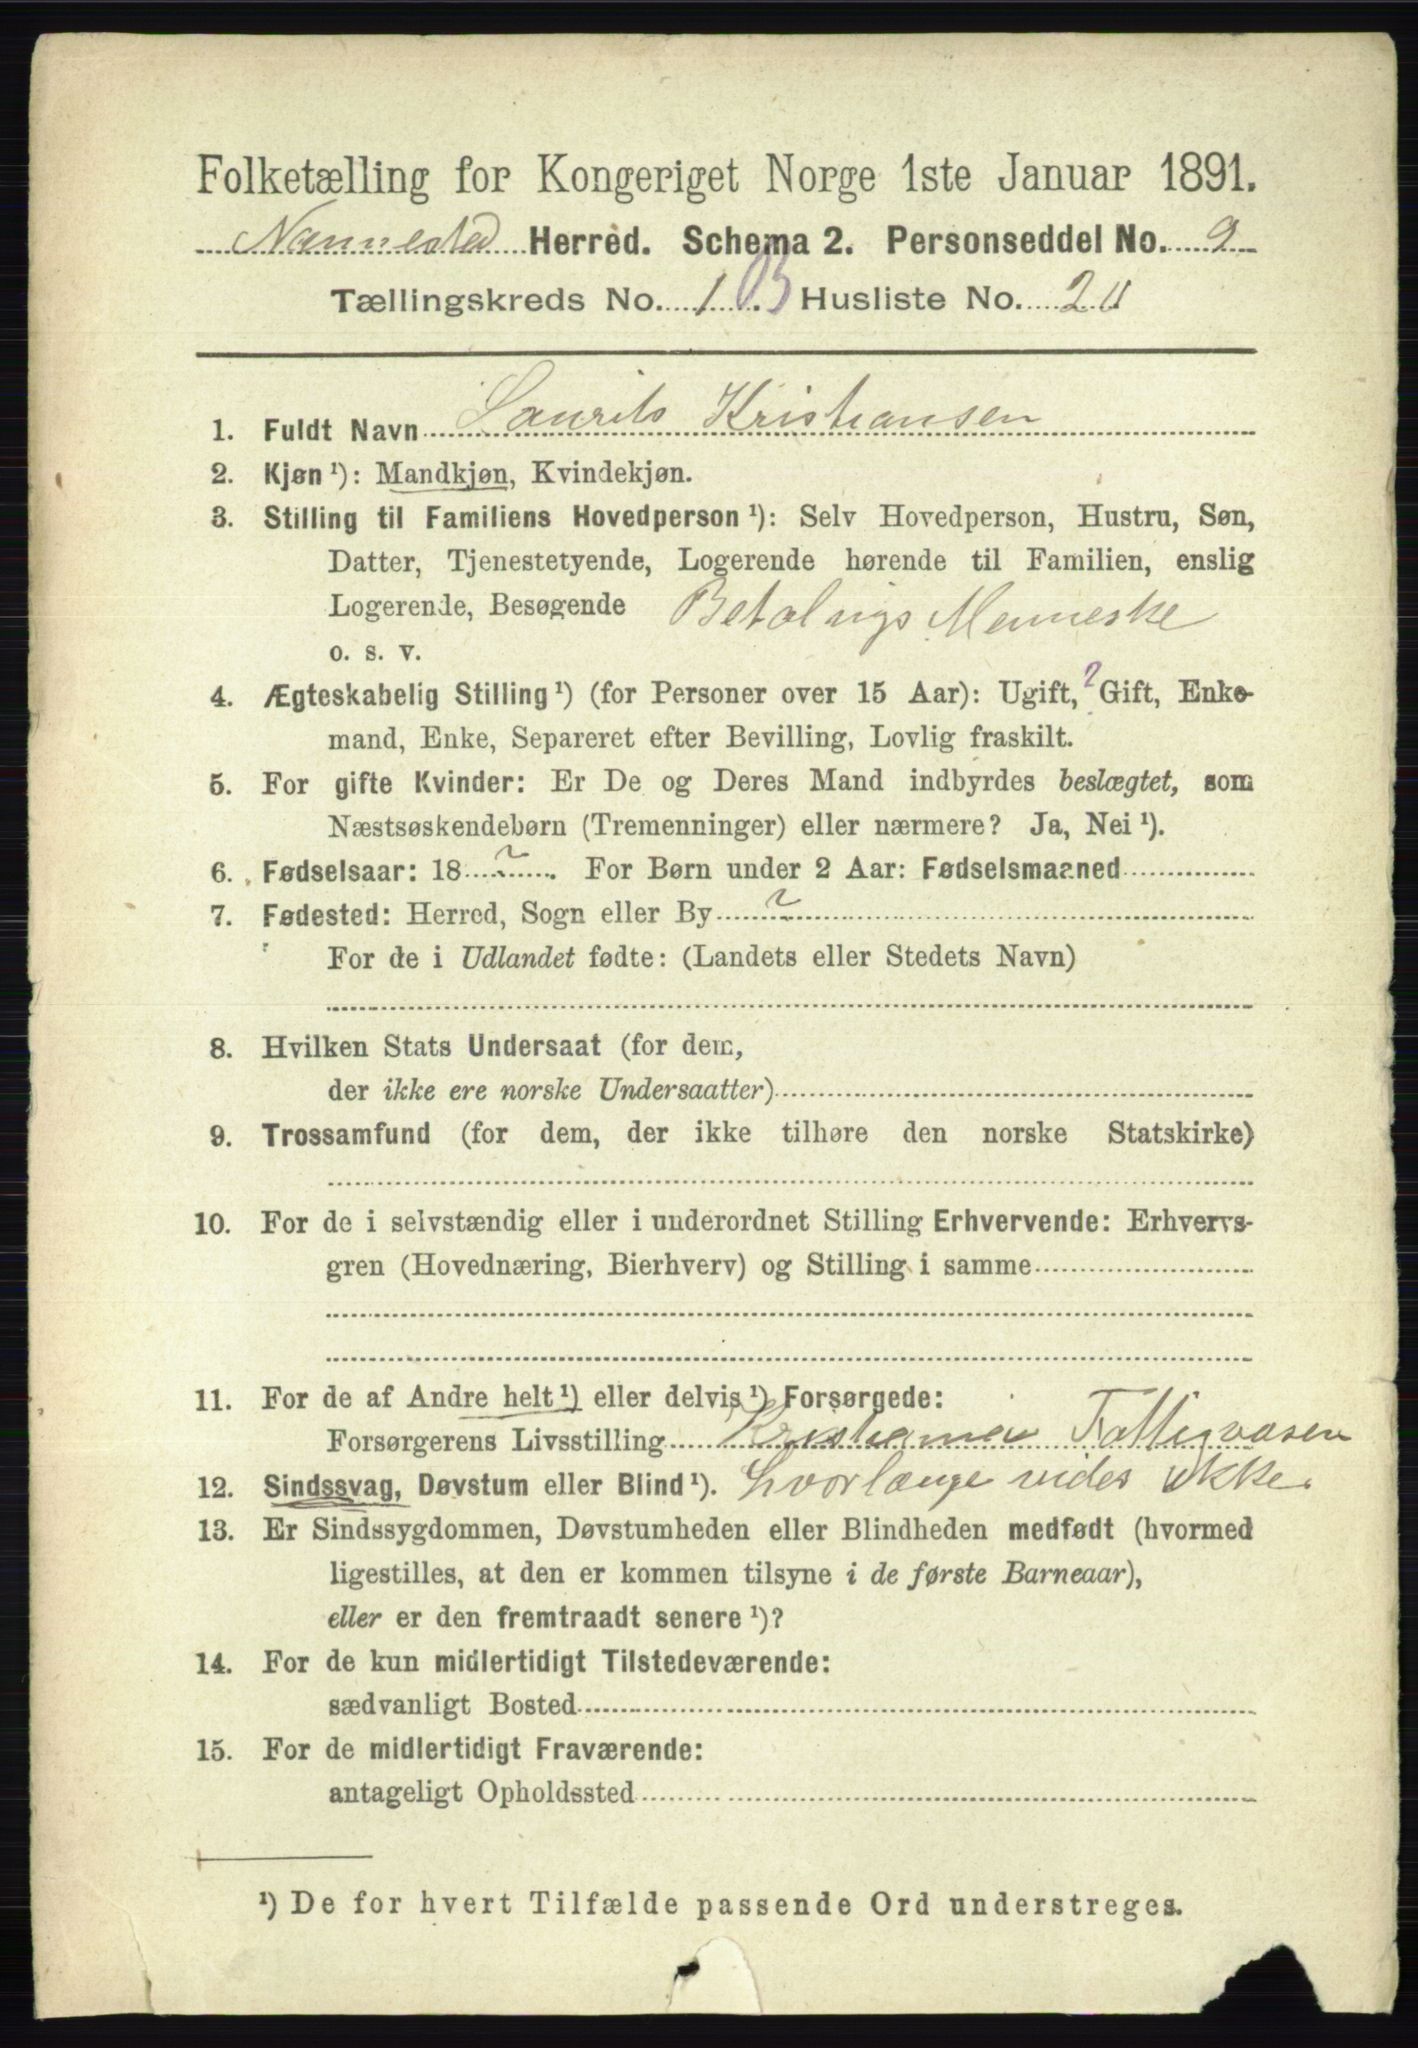 Folketælling for Kongeriget Norge 1ste Januar 1891.
Nannestad Herred. Schema 2. Personseddel No. 9
Tællingskreds No. 1 B. Husliste No. 20
1. Fuldt Navn Laurits Kristiansen
2. Kjøn ¹): Mandkjøn, Kvindekjøn.
3. Stilling til Familiens Hovedperson ¹): Selv Hovedperson, Hustru, Søn,
Datter, Tjenestetyende, Logerende hørende til Familien, enslig
Logerende, Besøgende Betalings Menneske
o. s. v.
4. Ægteskabelig Stilling ¹) (for Personer over 15 Aar): Ugift, ? Gift, Enke-
mand, Enke, Separeret efter Bevilling, Lovlig fraskilt.
5. For gifte Kvinder: Er De og Deres Mand indbyrdes beslægtet, som
Næstsøskendebørn (Tremenninger) eller nærmere? Ja, Nei ¹).
6. Fødselsaar: 18 ? . For Børn under 2 Aar: Fødselsmaaned
7. Fødested: Herred, Sogn eller By ?
For de i Udlandet fødte: (Landets eller Stedets Navn)
8. Hvilken Stats Undersaat (for dem,
der ikke ere norske Undersaatter)
9. Trossamfund (for dem, der ikke tilhøre den norske Statskirke)
10. For de i selvstændig eller i underordnet Stilling Erhvervende: Erhvervs-
gren (Hovednæring, Bierhverv) og Stilling i samme
11. For de af Andre helt ¹) eller delvis ¹) Forsørgede:
Forsørgerens Livsstilling Kristiania Fattigvæsen
12. Sindssvag, Døvstum eller Blind ¹). hvorlænge vides ikke.
13. Er Sindssygdommen, Døvstumheden eller Blindheden medfødt (hvormed
ligestilles, at den er kommen tilsyne i de første Barneaar),
eller er den fremtraadt senere ¹)?
14. For de kun midlertidigt Tilstedeværende:
sædvanligt Bosted
15. For de midlertidigt Fraværende:
antageligt Opholdssted
¹) De for hvert Tilfælde passende Ord understreges.